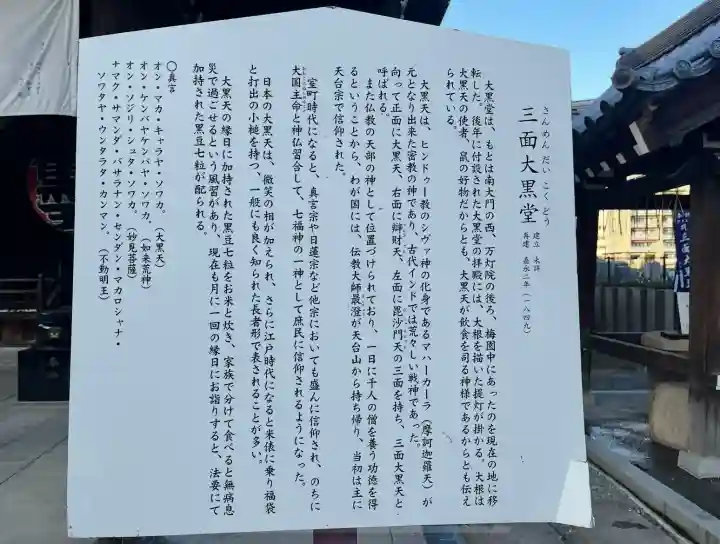 さんめんだいこくどう
三面大黒堂
建立 不詳
再建 嘉永二年(一八四九)
大黒堂は、もとは南大門の西、万灯院の後ろ、梅園中にあったのを現在の地に移
転した。後年に付設された大黒堂の拝殿には、大根を描いた提灯が掛かる。大根は
大黒天の使者、鼠の好物だからとも、大黒天が飲食を司る神様であるからとも伝え
られている。
大黒天は、ヒンドゥー教のシヴァ神の化身であるマハーカーラ(摩訶迦羅天)が
元となり出来た密教の神であり、古代インドでは荒々しい戦神であった。
向って正面に大黒天、右面に辯財天、左面に毘沙門天の三面を持ち、三面大黒天と
呼ばれる。
また仏教の天部の神として位置づけられており、一日に千人の僧を養う功徳を得
るということから、わが国には、伝教大師最澄が天台山から持ち帰り、当初は主に
天台宗で信仰された。
室町時代になると、真言宗や日蓮宗など他宗においても盛んに信仰され、のちに
大国主命と神仏習合して、七福神の一神として庶民に信仰されるようになった。
日本の大黒天は、微笑の相が加えられ、さらに江戸時代になると米俵に乗り福袋
と打出の小槌を持つ、一般にも良く知られた長者形で表されることが多い。
大黒天の縁日に加持された黒豆七粒をお米と炊き、家族で分けて食べると無病息
災で過ごせるという風習があり、現在も月に一回の縁日にお詣りすると、法要にて
加持された黒豆七粒が配られる。
〇真言
オン・マカ・キャラヤ・ソワカ。(大黒天)
オン・ケンバヤケンバヤ・ソワカ。(如来荒神)
オン・ソジリ・シュタ・ソワカ。(妙見菩薩)
ナマク・サマンダ・バサラナン・センダン・マカロシャナ・
ソワタヤ・ウンタラタ・カンマン。(不動明王)
三面大黒